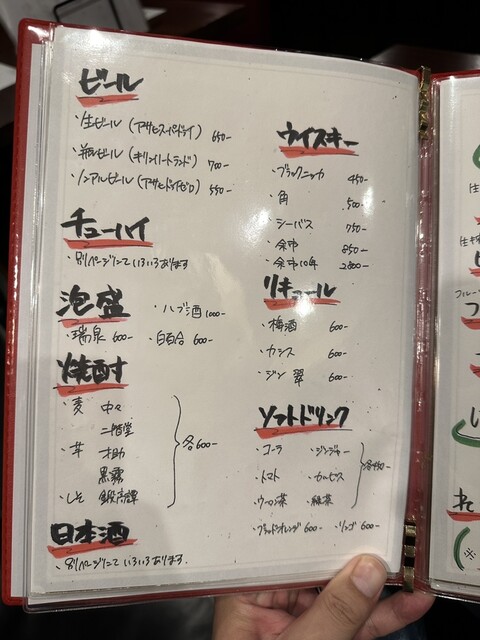 ビール
・生ビール(アサヒスーパードライ) 650-
・瓶ビール(キリンハートランド) 700-
・ノンアルビール(アサヒドライゼロ) 550-
チューハイ
・別ページにていろいろあります
泡盛
・ハブ酒 1000-
・瑞泉 600- ・白百合 600-
焼酎
・麦 中々
二階堂
・芋 才助
黒霧
・しそ 鍛高譚
各600-
日本酒
・別ページにていろいろあります.
ウイスキー
・ブラックニッカ 450-
・角 500-
シーバス 750-
・余市 850-
・余市10年 2800-
リキュール
・梅酒 600-
・カシス 600-
・ジン 翠 600-
ソフトドリンク
・コーラ ・ジンジャー
・トマト ・カルピス
・ウーロン茶 ・緑茶
各450-
・ブラッドオレンジ 600- ・リンゴ 600-